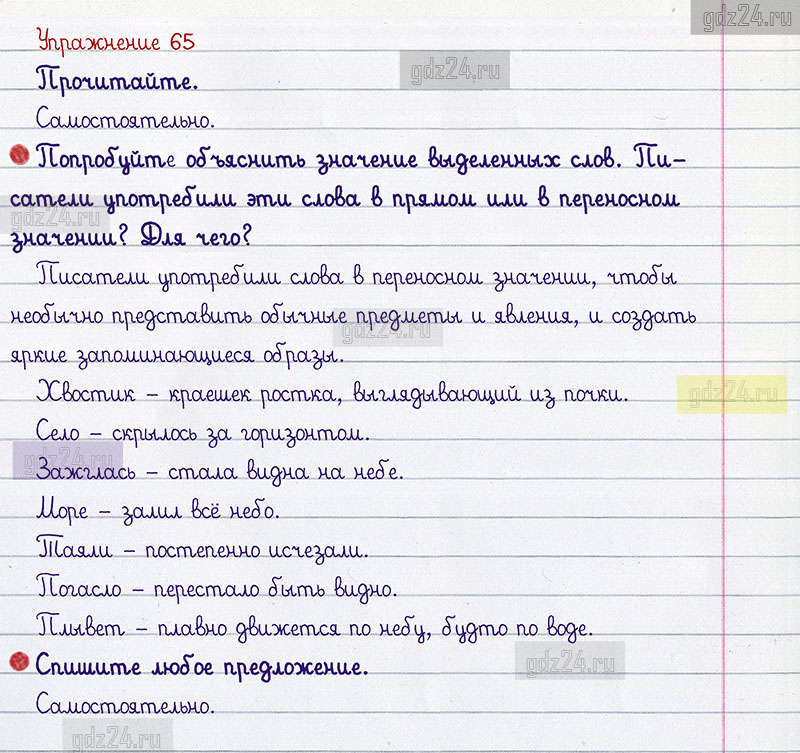 gdz24.ru
Упражнение 65
gdz24.ru
Прочитайте.
Самостоятельно.
Попробуйте объяснить значение выделенных слов. Пи-
сатели употребили эти слова в прямом или в переносном
gdz24.ru
значении? Для чего?
Писатели употребили слова в переносном значении, чтобы
необычно представить обычные предметы и явления, и создать
gdz24.ru
яркие запоминающиеся образы.
Хвостик – краешек ростка, выглядывающий из почки.
gdz24.ru
Село – скрылось за горизонтом.
gdz24.ru
Зажглась – стала видна на небе.
Море – залил всё небо.
Таяли – постепенно исчезали.
Погасло – перестало быть видно.
Плывет – плавно движется по небу, будто по воде.
Спишите любое предложение.
gdz24.ru
Самостоятельно.
gdz24.ru